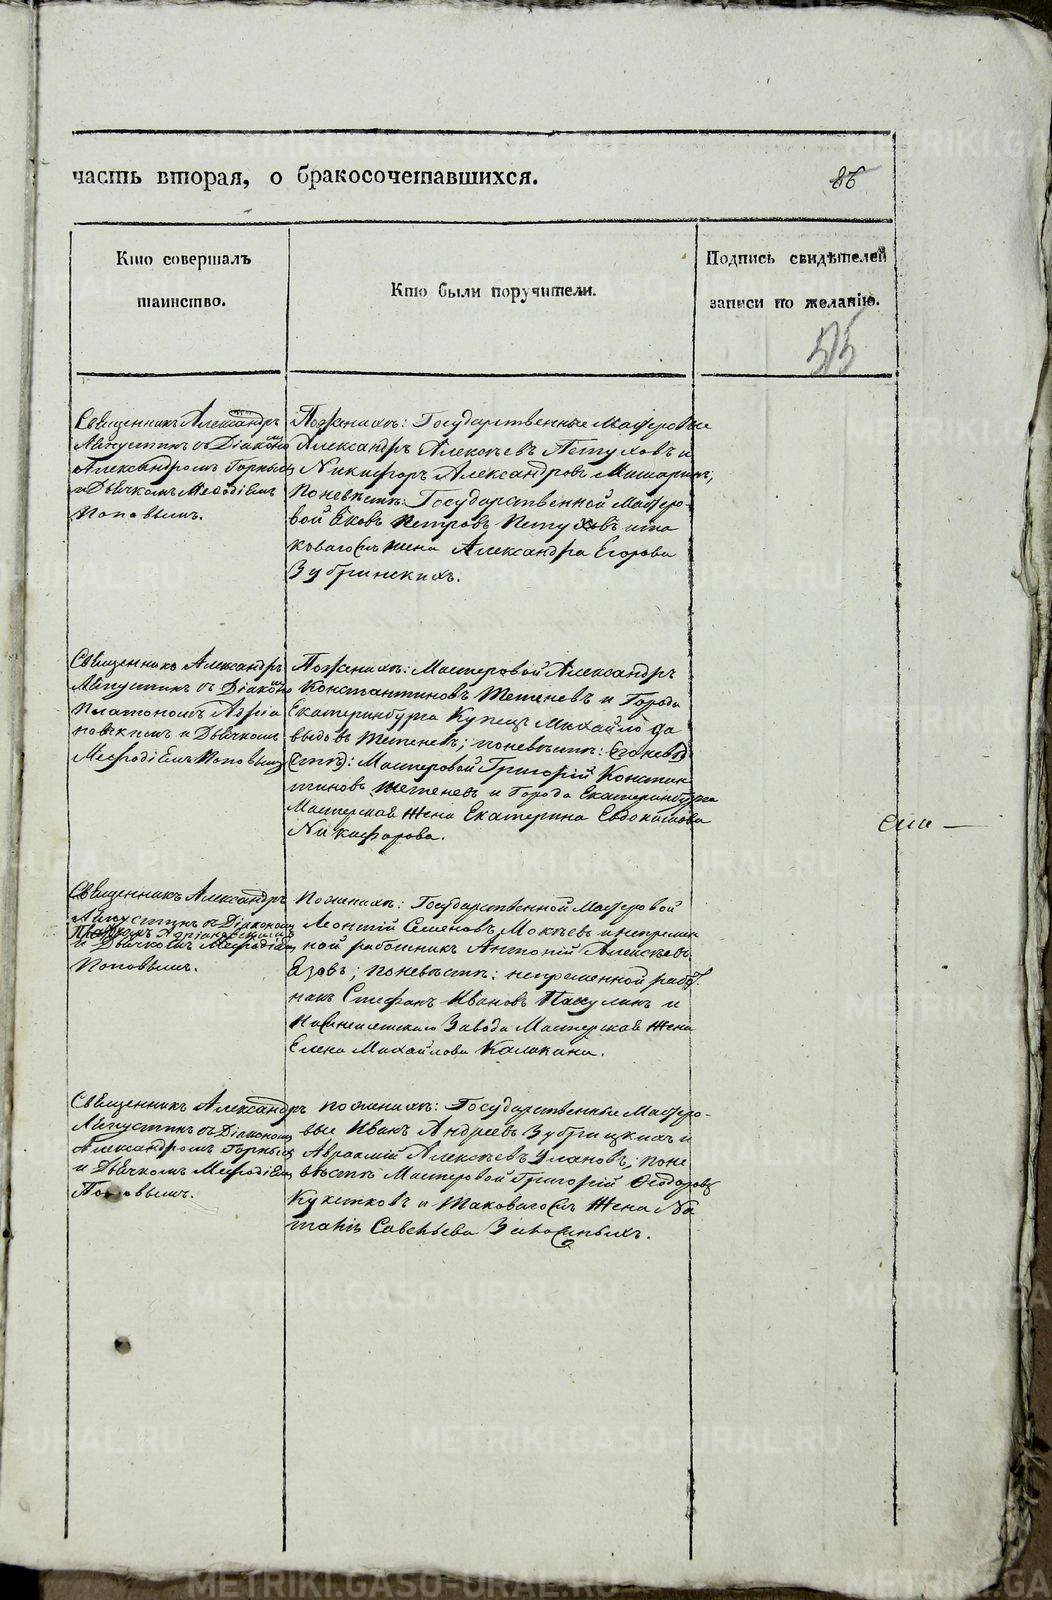 часть вторая, о бракосочетавшихся.
86
Кто совершалъ
таинство.
Кто были поручители.
Подпись свидѣтелей
записи по желанію.
515
Священникъ Александръ
съ Діакономъ
Александромъ Горнымъ
и Дьячкомъ Меѳодіемъ
Поповымъ.
По женихѣ: Государственные Мастеровые
Александръ Алексѣевъ Пѣтуховъ и
Никифоръ Александровъ
По невѣстѣ: Государственной Мастеро-
вой Яковъ Петровъ Пѣтуховъ и та
коваго жена Александра Егорова
Зубринскихъ.
Священникъ Александръ
съ Діакономъ
Платономъ Адріа
новскимъ и Дьячкомъ
Меѳодіемъ Поповымъ
По женихѣ: Мастеровой Александръ
Константиновъ Тетеневъ и Города
Екатеринбурга Купецъ Михайло Да
выдовъ Тетеневъ; по невѣстѣ:
Мастеровой Григорій Констан
тиновъ Тетеневъ и Города Екатеринбурга
Мастерская Жена Екатерина Евдокимова
Никифорова.
Священникъ Александръ
съ Діакономъ
и Дьячкомъ Меѳодіемъ
Поповымъ.
По женихѣ: Государственной Мастеровой
Леонтій Семеновъ Мокѣевъ и непремѣн
ной работникъ Антоній Алексѣевъ
Езовъ; по невѣстѣ: непременной работ
никъ Стефанъ Ивановъ Пакулинъ и
Завода Мастерская Жена
Елена Михайлова Калакина.
Священникъ Александръ
съ Діакономъ
Александромъ Горнымъ
и Дьячкомъ Меѳодіемъ
Поповымъ.
По женихѣ: Государственные Мастеро-
вые Иванъ Андреевъ Зубрицкихъ и
Авраамій Алексѣевъ Улановъ; по не
вѣстѣ Мастеровой Григорій Ѳеодоровъ
и таковаго Жена На
таліа Савельева
METRIKI.GASO-URAL.RU